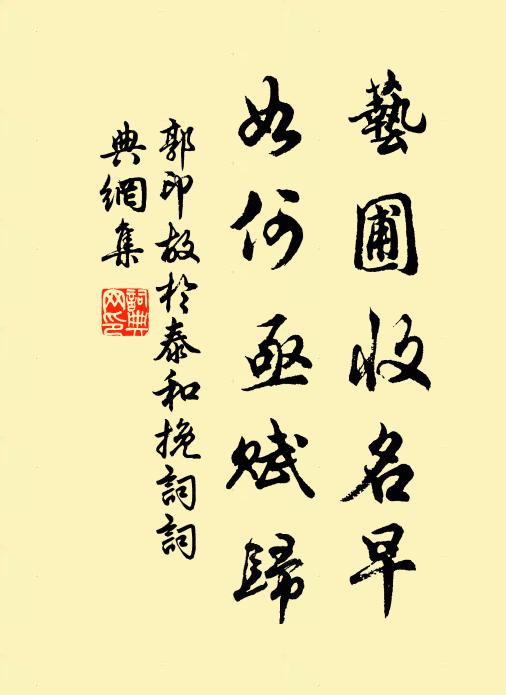 藝圃收名早
如何亟賦歸
郭印故於泰和挽詞詞
典網集
詞典
网印